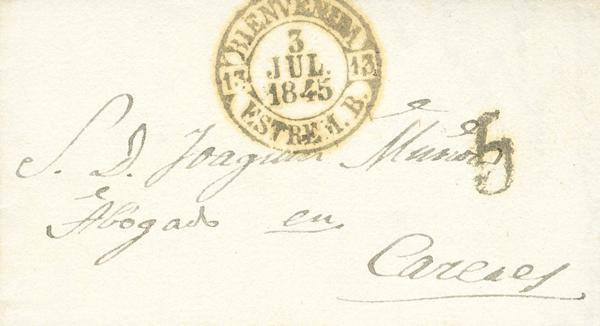 BIENVENIDA
13 3 13
JUL.
1845
ESTREM. B.
S. D. Joaquin Muños
5
Abogado en
Caceres